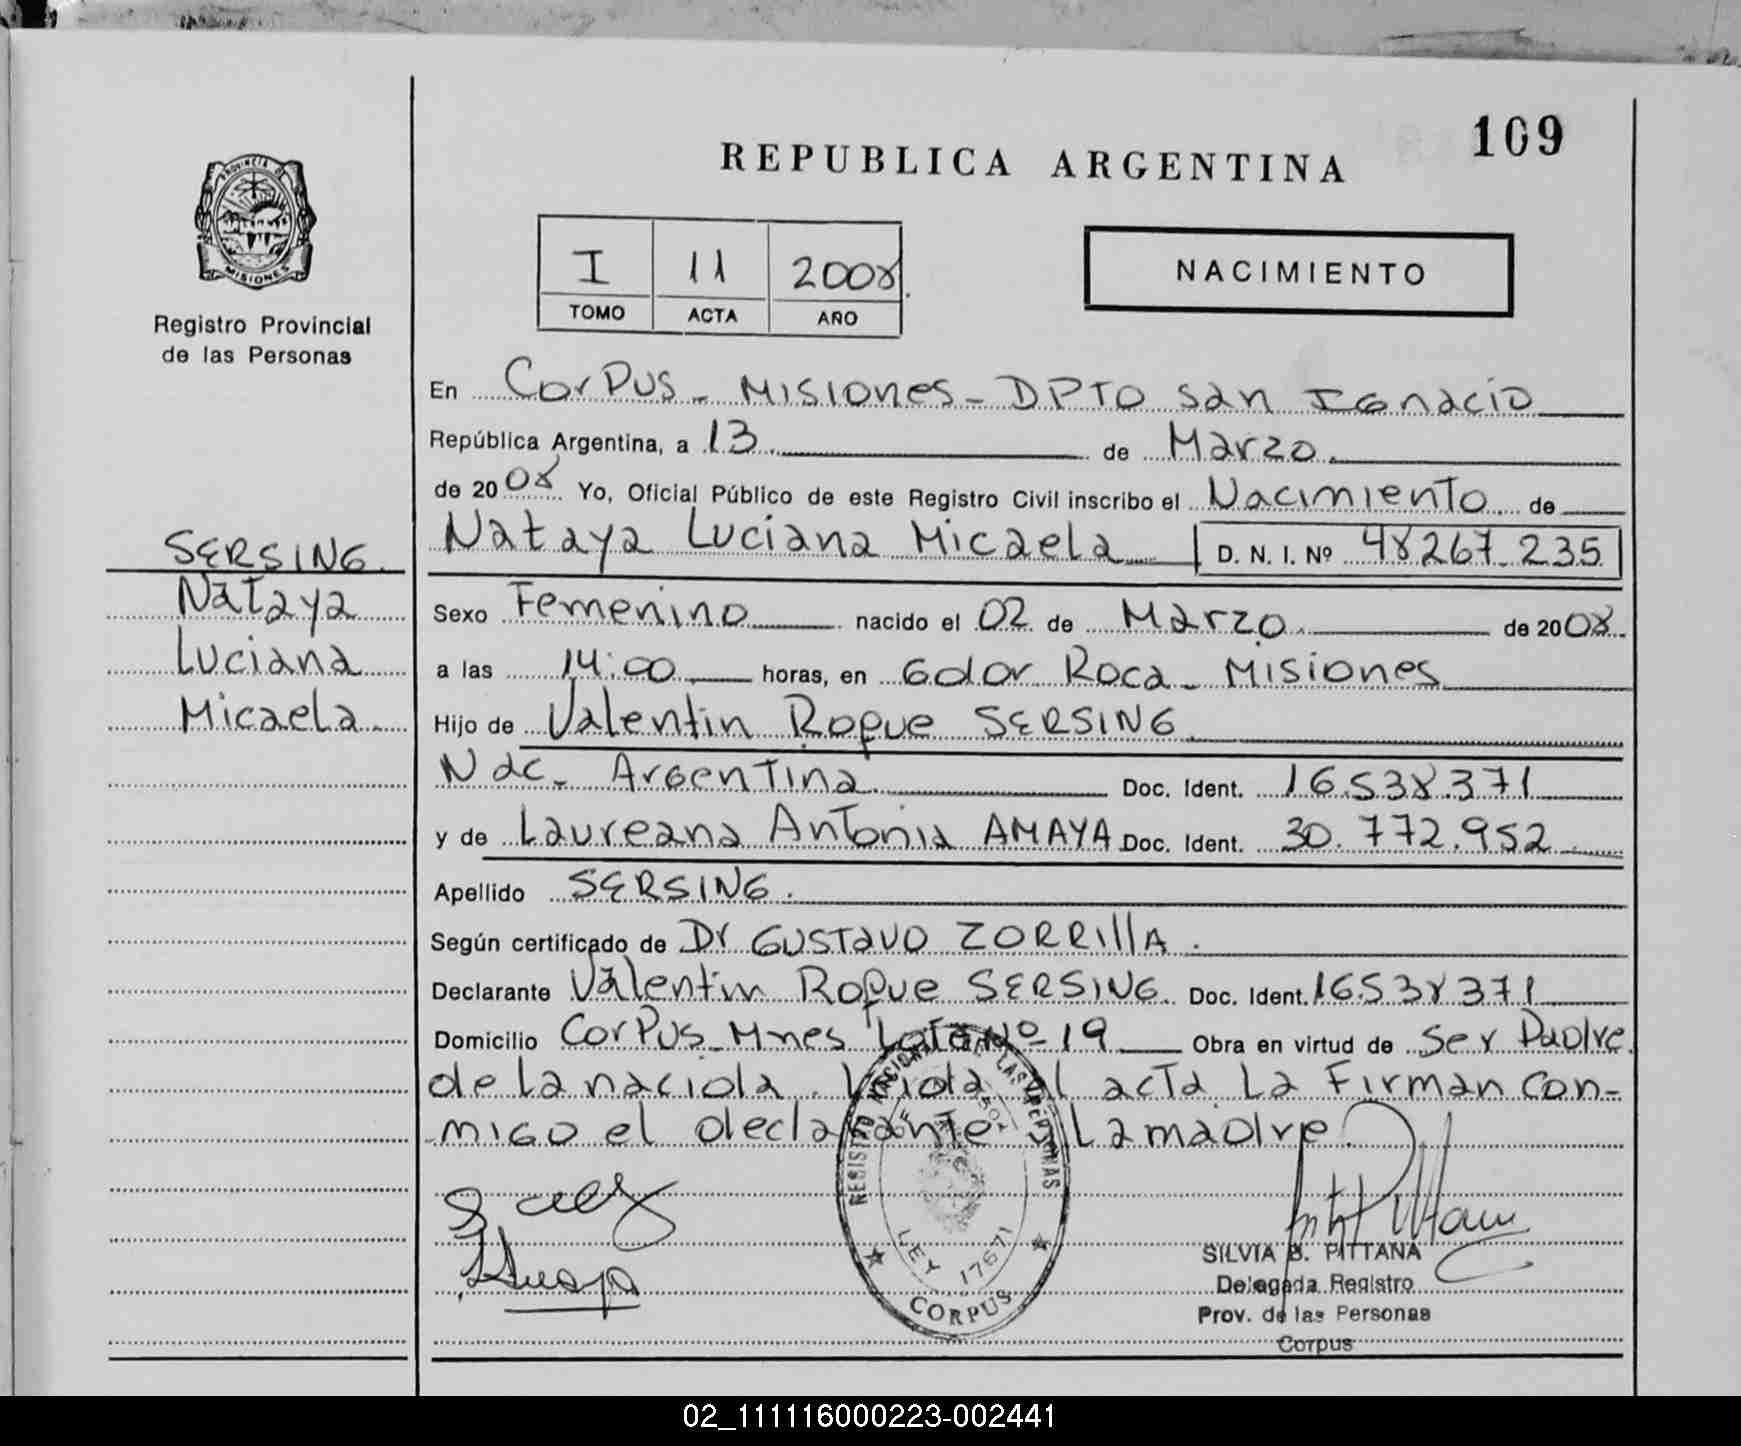 109
REPUBLICA ARGENTINA
PROVINCIA DE
MISIONES
Registro Provincial
de las Personas
NACIMIENTO
I 11 2008
TOMO ACTA AÑO
En Corpus - Misiones - DPTO San Ignacio
República Argentina, a 13 de Marzo
de 2008 Yo, Oficial Público de este Registro Civil inscribo el Nacimiento de
Nataya Luciana Micaela D. N. I. Nº 48267.235
SERSING
Nataya
Luciana
Micaela
Sexo Femenino nacido el 02 de Marzo de 2008
a las 14:00 horas, en Gdor Roca - Misiones
Hijo de Valentin Roque SERSING
Nac. Argentina Doc. Ident. 16.538.371
y de Laureana Antonia AMAYA Doc. Ident. 30.772.952
Apellido SERSING.
Según certificado de Dr Gustavo ZORRIllA.
Declarante Valentin Roque SERSING. Doc. Ident. 16538371
Domicilio Corpus Mnes Lote Nº 19 Obra en virtud de Ser Padre
de la nacida. Leida el acta La Firman con-
migo el declarante y La madre.
REGISTRO NACIONAL DE LAS PERSONAS
LEY 17671
CORPUS
SILVIA B. PITTANA
Delegada Registro
Prov. de las Personas
Corpus
02_111116000223-002441